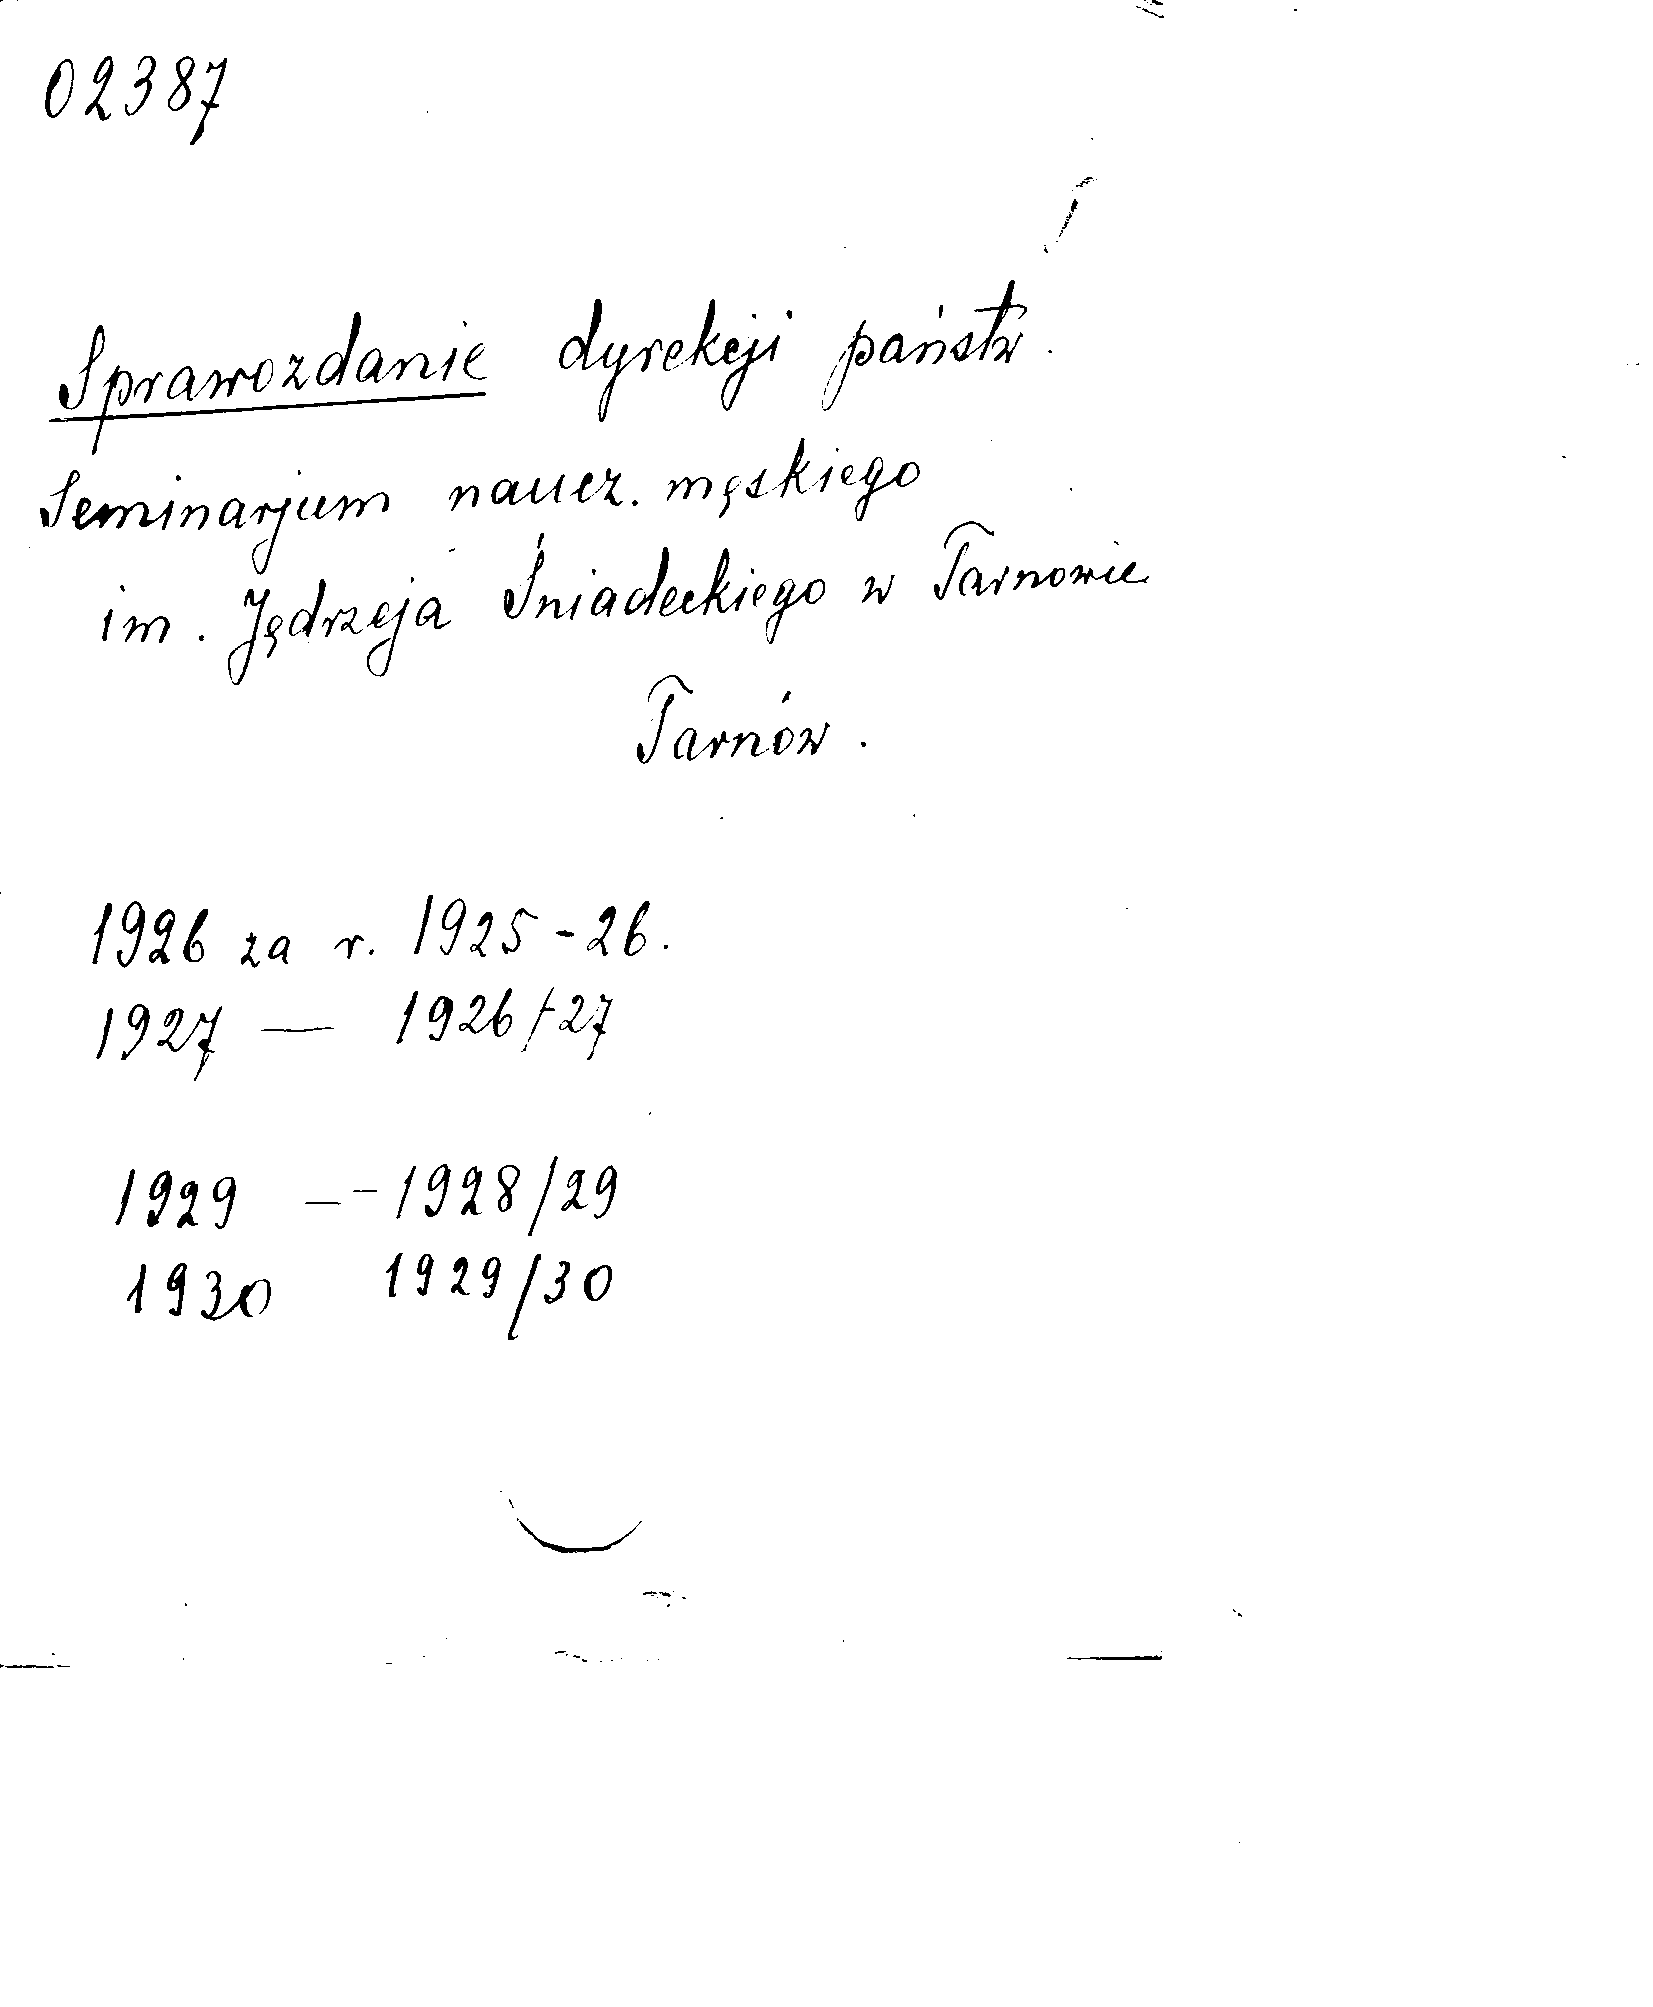 02387
Sprawozdanie dyrekcji państw.
Seminarjum naucz. męskiego
im. Jędrzeja Śniadeckiego w Tarnowie
Tarnów.
1926 za r. 1925-26.
1927 — 1926/27
1929 —- 1928/29
1930 1929/30